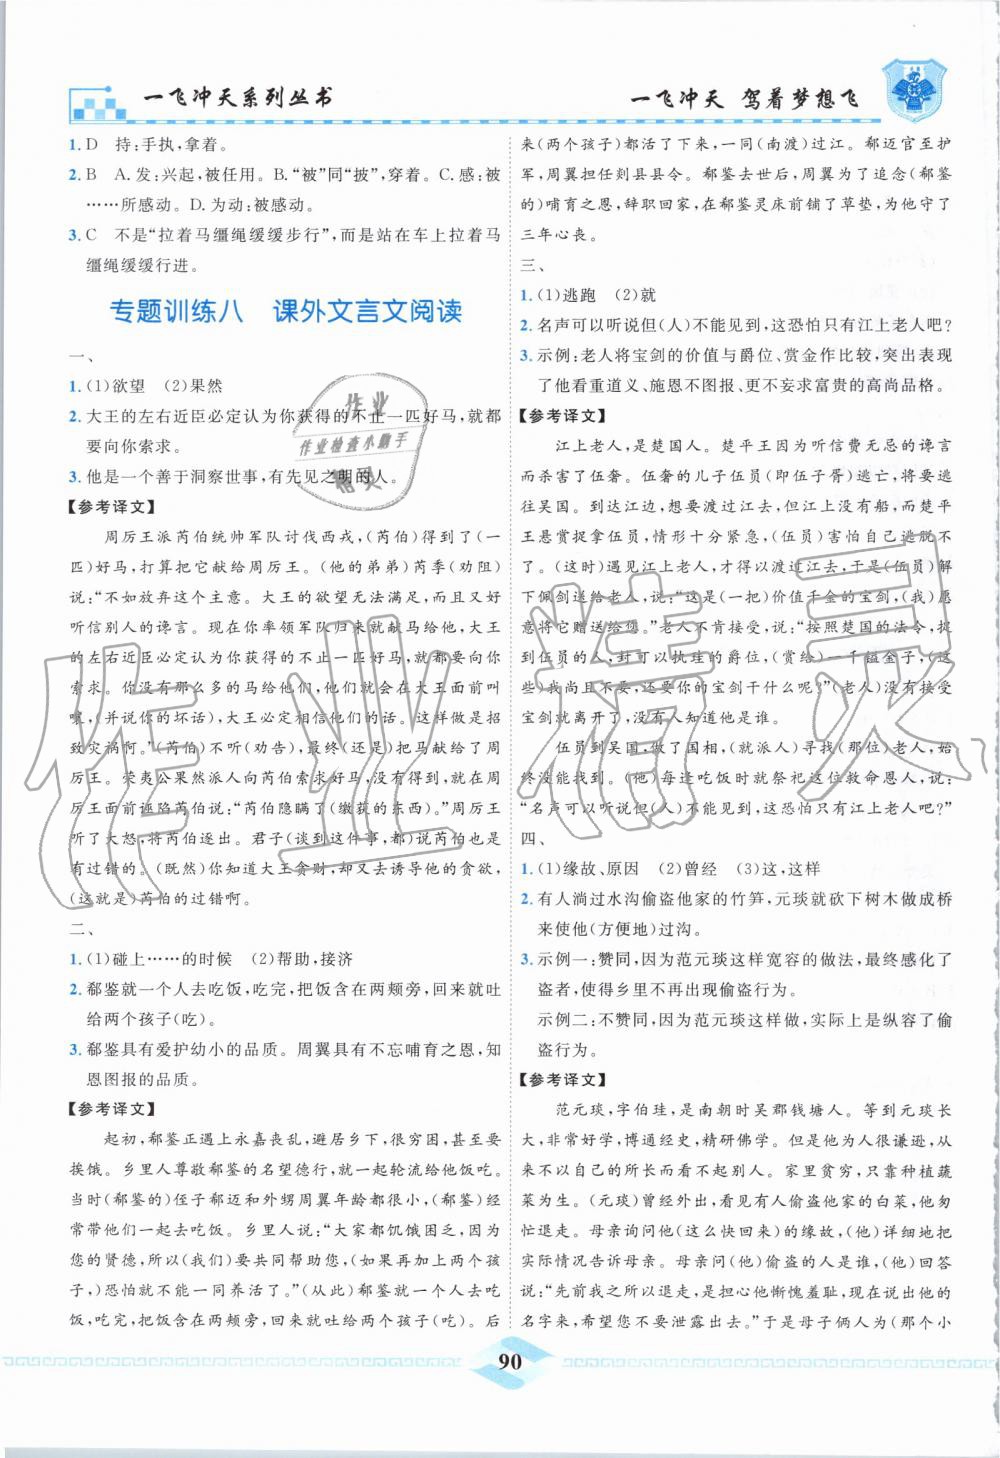 一飞冲天系列丛书
一飞冲天 驾着梦想飞
1. D 持:手执,拿着。
2. B A.发:兴起,被任用。B.“被”同“披”,穿着。C.感:被
……所感动。D.为动:被感动。
3. C 不是“拉着马缰绳缓缓步行”,而是站在车上拉着马
缰绳缓缓行进。
专题训练八 课外文言文阅读
一、
1. (1)欲望 (2)果然
2. 大王的左右近臣必定认为你获得的不止一匹好马,就都
要向你索求。
3. 他是一个善于洞察世事,有先见之明的人。
【参考译文】
周厉王派芮伯统帅军队讨伐西戎,(芮伯)得到了(一
匹)好马,打算把它献给周厉王。(他的弟弟)芮季(劝阻)
说:“不如放弃这个主意。大王的欲望无法满足,而且又
好听信别人的谗言。现在你率领军队归来就献马给他,大王
的左右近臣必定认为你获得的不止一匹好马,都要向你
索求。你没有那么多的马给他们,他们就会在大王面前叫
嚷,并说你的坏话),大王必定相信他们的话。这样做是招
致灾祸啊。”芮伯)不听(劝告),最终(还是)把马献给了周
厉王。荣夷公果然派人向芮伯索求好马,没有得到,就在周
厉王面前诬陷芮伯说:“芮伯隐瞒了(缴获的东西)。”周厉王
听了大怒,将芮伯逐出。君子(谈到这件事,都)说芮伯也是
有过错的。(既然)你知道大王贪财,却还去引发他的贪欲,
(这就是)芮伯的过错啊。
二、
1. (1)碰上……的时候 (2)帮助,接济
2. 郗鉴就一个人去吃饭,吃完,把饭含在两颊旁,回来就吐
给两个孩子(吃)。
3. 郗鉴具有爱护幼小的品质。周翼具有不忘哺育之恩,知
恩图报的品质。
【参考译文】
起初,郗鉴正遇上永嘉丧乱,避居乡下,很穷困,甚至要
挨饿。乡里人尊敬郗鉴的名望德行,就一起轮流给他饭吃。
当时(郗鉴的)侄子郗迈和外甥周翼年龄都很小,(郗鉴)经
常带他们一起去吃饭。乡里人说:“大家都饥饿困乏,因为
您的贤德,所以(我们)要共同帮助您,(如果再加上两个孩
子,)恐怕就不能一同养活了。”(从此)郗鉴就一个人去吃
饭,吃完,把饭含在两颊旁,回来就吐给两个孩子(吃)。后
来(两个孩子)都活了下来,一同(南渡)过江。郗迈官至护
军,周翼担任剡县县令。郗鉴去世后,周翼为了追念(郗鉴
的)哺育之恩,辞职回家,在郗鉴灵床前铺了草垫,为他守了
三年心丧。
三、
1. (1)逃跑 (2)就
2. 名声可以听说但(人)不能见到,这恐怕只有江上老人吧?
3. 示例:老人将宝剑的价值与爵位、赏金作比较,突出表现
了他看重道义、施恩不图报、更不妄求富贵的高尚品格。
【参考译文】
江上老人,是楚国人。楚平王因为听信费无忌的谗言
而杀害了伍奢。伍奢的儿子伍员(即伍子胥)逃亡,将要投
奔吴国。到达江边,想要渡过江去,但没有船,而楚平
王悬赏捉拿伍员,情形十分紧急,(伍员)害怕自己逃脱不
了。(这时)遇见江上老人,才得以渡过江去,于是(伍员)解
下佩剑送给老人,说:“这是(一把)价值千金的宝剑,(我)愿
意将它赠送给您。”老人不肯接受,说:“按照楚国的法令,捉
到伍员的人,封可以执珪的爵位,(赏给)一千镒金子,(这
些)我尚且不要,还要您的宝剑干什么呢?”(老人)没有接受
宝剑就离开了,没有人知道他是谁。
伍员到吴国,做了国相,(就派人)寻找(那位)老人,始
终没能找到。(他)每逢吃饭时就祭祀这位救命恩人,说:
“名声可以听说但(人)不能见到,这恐怕只有江上老人吧?”
四、
1. (1)缘故、原因 (2)曾经 (3)这,这样
2. 有人淌过水沟偷盗他家的竹笋,元琰就砍下树木做成桥
来使他(方便地)过沟。
3. 示例一:赞同,因为范元琰这样宽容的做法,最终感化了
盗者,使得乡里不再出现偷盗行为。
示例二:不赞同,因为范元琰这样做,实际上是纵容了偷
盗行为。
【参考译文】
范元琰,字伯珪,是南朝时吴郡钱塘人。等到元琰长
大,非常好学,博通经史,精研佛学。但是他为人很谦逊,从
来不以自己的所长而看不起别人。家里贫困,只靠种植蔬
菜为生。(元琰)曾经外出,看见有人偷盗他家的白菜,他匆
忙退走。母亲询问他(这么快回来)的缘故,(他)详细地把
实际情况告诉母亲。母亲问偷盗的人是谁,(他)回答
说:“先前我之所以退走,是担心他惭愧羞耻,现在我说出他的
名字来,希望您不要泄露出去。”于是母子俩人为(那个小
90
作业
作业检查小助手
精灵
作业精灵